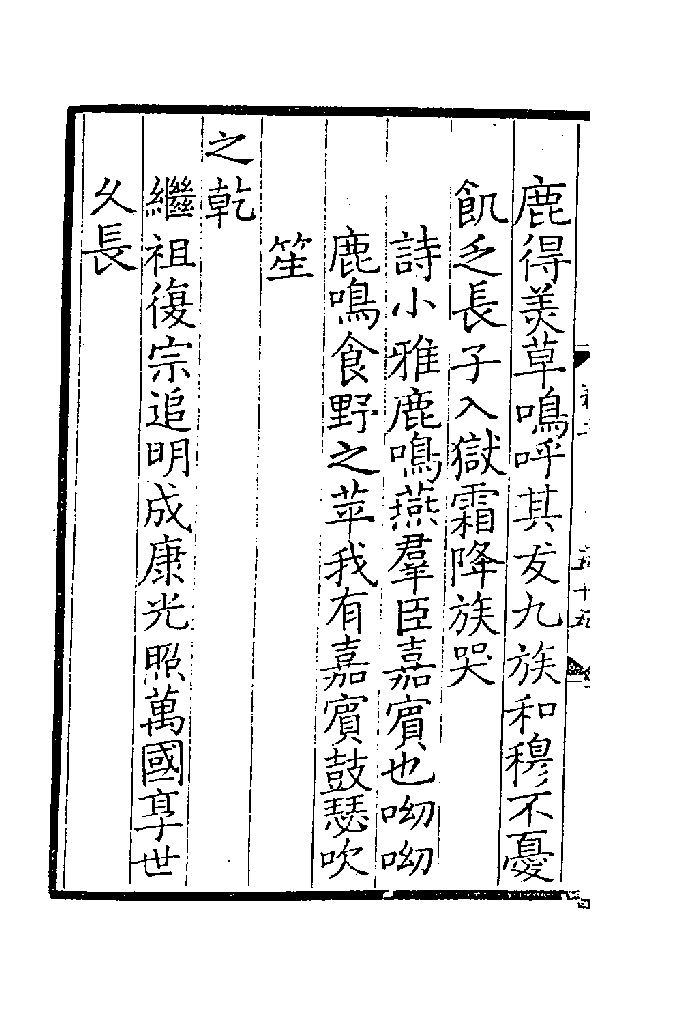 鹿得美草鳴呼其友九族和穆不憂
飢乏長子入獄霜降族哭
詩小雅鹿鳴燕羣臣嘉賓也呦呦
鹿鳴食野之苹我有嘉賓鼓瑟吹
笙
之乾
繼祖復宗追明成康光照萬國享世
久長